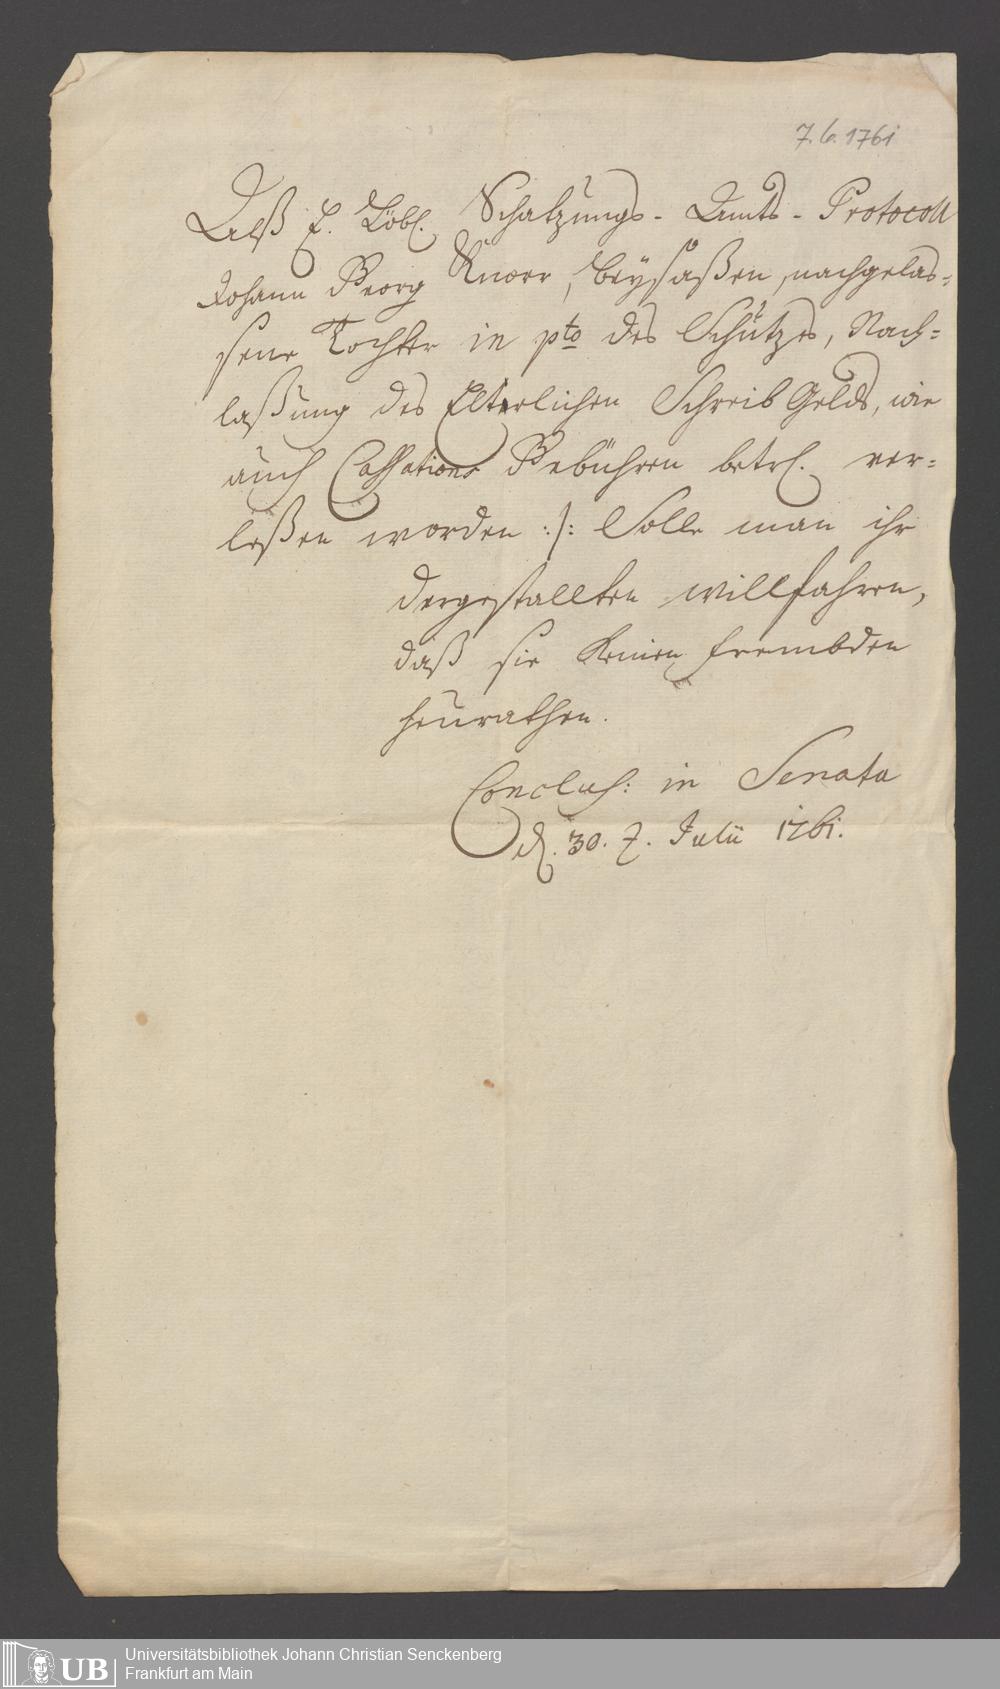 7.6.1761
Alß E. Löbl. Schatzungs-Amts-Protocoll
Johann Georg Knorr, Beysaßen, nachgelas=
sene Tochter in pto des Schutzes, Nach=
laßung des Elterlichen Schreib Gelds, wie
auch Cassations Gebühren betrf. ver=
leßen worden :/: Solle man ihr
dergestallten willfahren,
daß sie keinen frembden
heurathen.
Conclus: in Senatu
d. 30. Julii 1761.
UB
Universitätsbibliothek Johann Christian Senckenberg
Frankfurt am Main